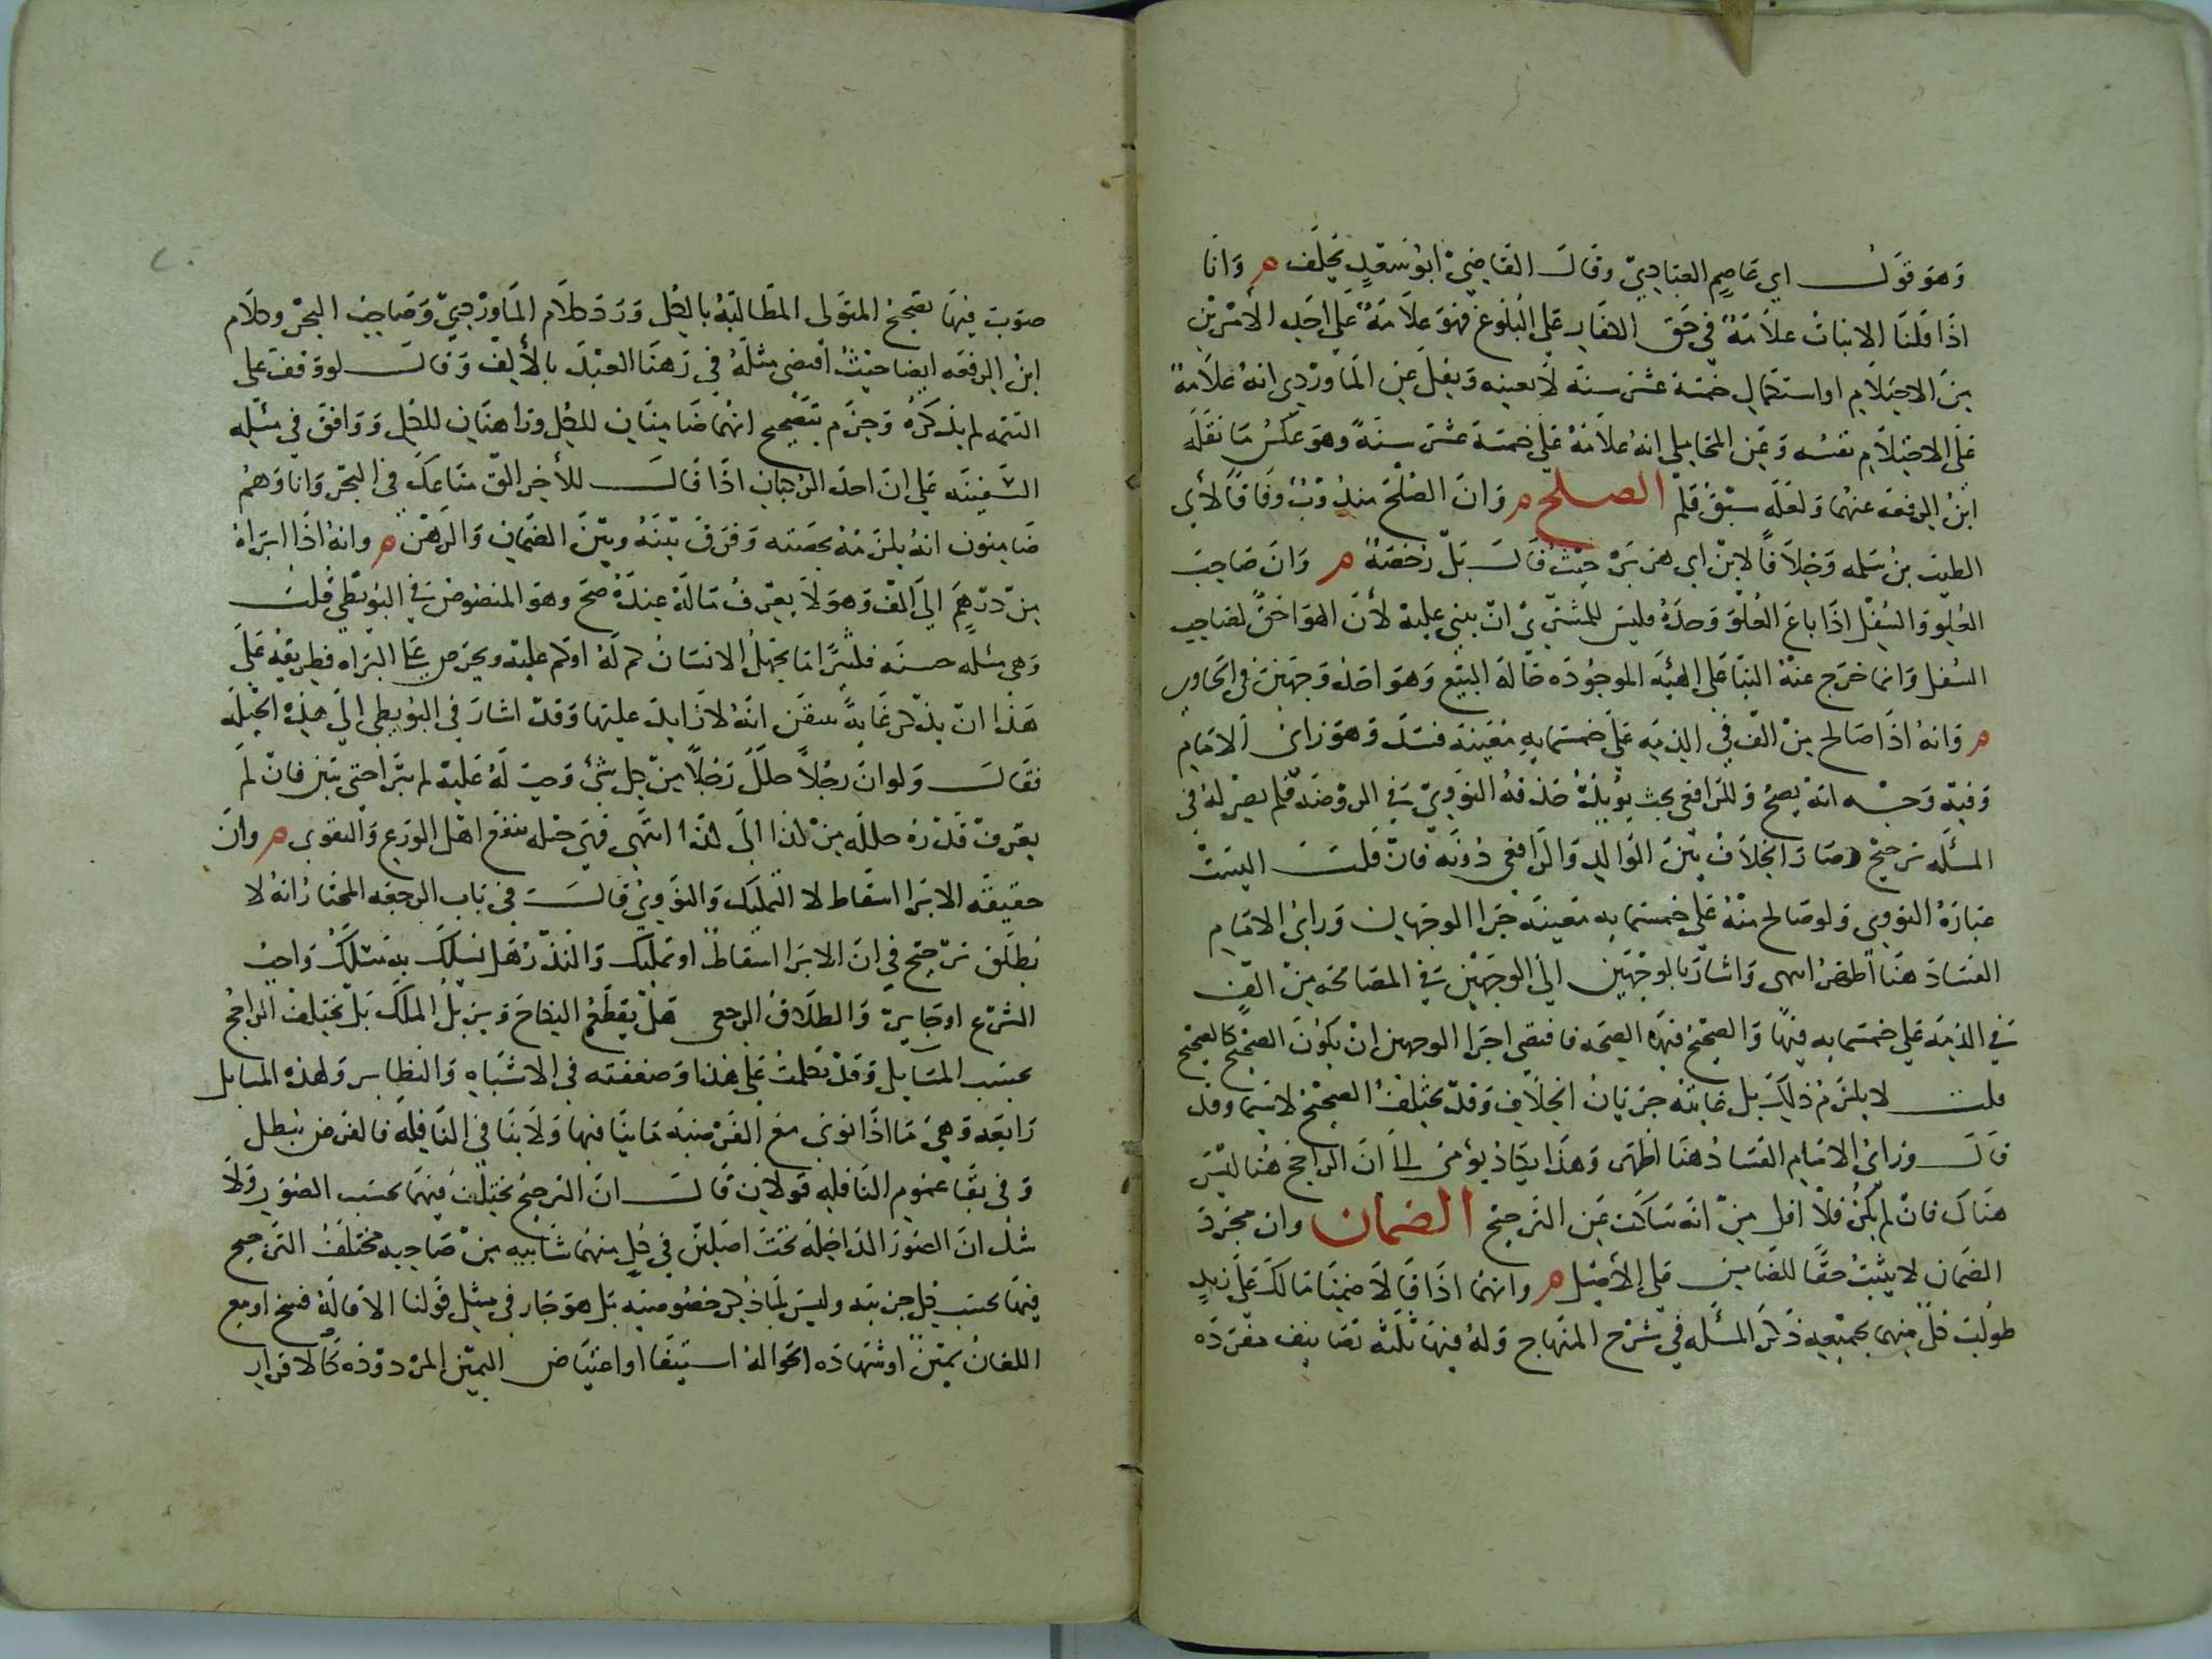 وهو قول ابي عاصم العبادي وقال القاضي ابو سعد يحلف ه وانا
اذا قلنا الانبات علامة في حق الكفار على البلوغ فهو علامة على احد الأمرين
من الاحتلام او استكمال خمسة عشر سنة لا بعينه ونقل عن الماوردي انه علامة
على الاحتلام نفسه وعن المحاملي انه علامة على خمسة عشر سنة وهو عكس ما نقله
ابن الرفعة عنهما ولعله سبق قلم الصلح ه وان الصلح مندوب وفاقا لأبي
الطيب بن سلمه وخلافا لابن ابي هريرة حيث قال بل رخصة ه وان صاحب
العلو والسفل اذا باع العلو وحده فليس للمشتري ان يبني عليه لأن الهوا حق لصاحب
السفل وانما خرج عنه البنا على الهيئة الموجوده حالة البيع وهو احد وجهين في الحاوي
ه وانه اذا صالح من الف في الذمه على خمسمايه معينة فسد وهو راى الامام
وفيه وجه انه يصح وللرافعي بحث يؤيده حذفه النووي في الروضه فلم يصر له في
المسئله ترجيح وصار الخلاف بين الوالد والرافعي دونه فان قلت اليست
عبارة النووي ولو صالح منه على خمسمايه معينة جرا الوجهان وراى الامام
الفساد هنا اظهر انتهى واشار بالوجهين الى الوجهين في المصالحة من الف
في الذمة على خمسمايه فيها والصحيح فيه الصحه فاقتضى اجرا الوجهين ان يكون الصحيح كالصحيح
قلت لا يلزم ذلك بل غايته جريان الخلاف وقد يختلف الصحيح لا سيما وقد
قال وراى الامام الفساد هنا اظهر وهذا يكاد يؤمى الى ان الراجح هنا ليس
هناك فان لم يكن فلا اقل من انه ساكت عن الترجيح الضمان وان مجرد
الضمان لا يثبت حقا للضامن على الأصيل ه وانهما اذا قالا ضمنا مالك على زيد
طولب كل منهما بجميعه ذكر المسئله في شرح المنهاج وله فيها ثلثة تصانيف مفرده
صوب فيها تصحيح المتولى المطالبة بالكل ورد كلام الماوردي وصاحب البحر وكلام
ابن الرفعه ايضا حيث اقتضى مثله في رهنا العبد بالألف وقال لو وقف على
التتمه لم يذكره وجزم بتصحيح انهما ضامنان للكل وراهنان للكل ووافق في مسئله
السفينه على ان احد الركبان اذا قال للأخر الق متاعك في البحر وانا وهم
ضامنون انه يلزمه بحصته وفرق بينه وبين الضمان والرهن ه وانه اذا ابراه
من درهم الى الف وهو لا يعرف ما له عنده صح وهو المنصوص في البويطي قلت
وهي مسئله حسنه فكثيرا ما يجهل الانسان كم له او كم عليه ويحرص على البراه فطريقه على
هذا ان يذكر غاية يتيقن انه لا زايد عليها وقد اشار في البويطي الى هذه الحيله
فقال ولو ان رجلا حلل رجلا من كل شئ وجب له عليه لم يبرا حتى يبين فان لم
يعرف قدره حلله من كذا الى كذا انتهى فهي حيله تنفع اهل الورع والتقوى ه وان
حقيقه الابرا اسقاط لا التمليك والنووي قال في باب الرجعه المختار انه لا
يطلق ترجيح في ان الابرا اسقاط او تمليك والنذر هل يسلك به مسلك واجب
الشرع او جايز والطلاق الرجعي هل يقطع النكاح ويزيل الملك بل يختلف الراجح
بحسب المسايل وقد تكلمت على هذا وضعفته في الاشباه والنظاير ولهذه المسايل
رابعه وهي ما اذا نوى مع الفرضيه ما ينافيها ولا ينافي النافله فالفرض يبطل
وفي بقا عموم النافله قولان قال ان الترجيح يختلف فيهما بحسب الصور ولا
شك ان الصور الداخله تحت اصلين في كل منهما شابيه من صاحبه مختلف الترجيح
فيها بحسب كل جزييه وليس لما ذكر خصوصيه بل هو جار في مثل قولنا الاقاله فسخ او بيع
اللعان يمين او شهاده الحوالة استيفا او اعتياض اليمين المردوده كالاقرار